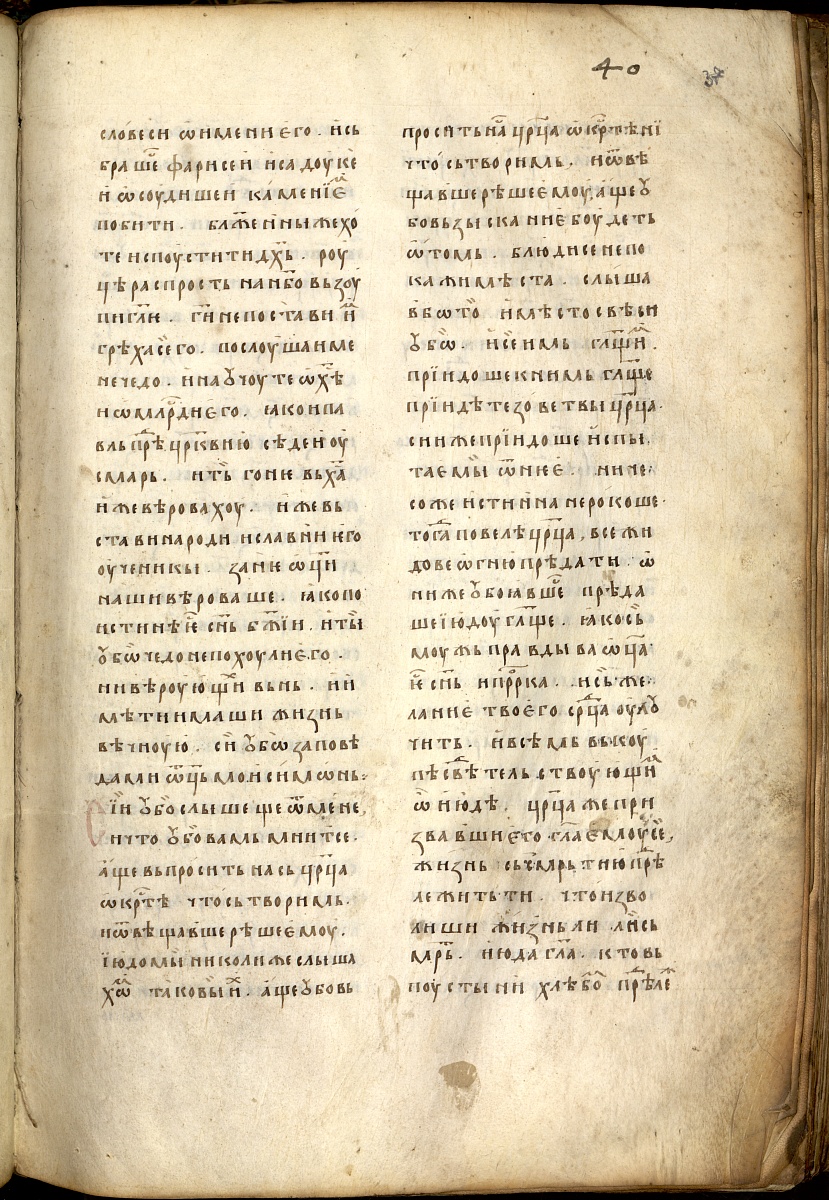 40
37
словеси ѡ имени ѥго · и сь
браше фарисеи и садоуке
и ѡсоудише и каменїѥмь
побити · блаженны же хо
те испоустити дх҃ь · роу
цѣ распрость на нб҃о вьзоу
пи гл҃ѥ · ги҃ не постави имь
грѣха сего · послоушаи ме
не чедо · и наѹчоу те ѡ х҃ѣ
и ѡ млрⷭ҇дии ѥго · ꙗко и па
вль прⷣѣ црⷦ҇квию сѣдеи оу
смарь · и тъ гонѥ вь х҃а
иже вѣровахоу · и же вь
стави народи и слави и ѥго
оученикы · занѥ ѡц҃и
наши вѣроваше · ꙗко по
истинѣ ѥⷭ сн҃ь бж҃їи · и ты
ѹбѡ чедо не похоули ѥго ·
ни вѣроующїи вь нь · и и
мѣти имаши жизнь
вѣчноую · си ѹбѡ заповѣ
да ми ѡц҃ь мои сімѡнь ·
Сїи ѹбо слышеще ѿ мене
ничто ѹбо вамь мнит се ·
аще вьпросить нась цр҃ца
ѡ крⷭ҇тѣ что сьтворимь ·
и ѿвѣщавше рѣше ѥмоу ·
їюдо мы николиже слыша
хѡⷨ таковыиⷯ · аще ѹбо вь
просить на цр҃ца ѡ крⷭ҇тѣ нї
что сьтворимь · и ѿвѣ
щавше рѣше ѥмоу аще ѹ
бо вьзысканиѥ боудеть
ѡ томь · блюди се не по
кажи мѣста · слыша
в бѡ то и мѣсто свѣси
ѹбѡ · и се имь глⷳ҇щимь ·
прїидоше к нимь глⷳ҇ще
прїидѣте зовет вы цр҃ца ·
они же прїидоше и спы
таѥмы ѿ нѥѥ · ниче
соже истинна не рокоше ·
тогⷣа повелѣ цр҃ца, все жи
дове ѡгню прѣдати · ѡ
ни же ѹбоꙗвше прѣда
ше їюдоу гл҃ще · ꙗко сь
моужь праведьва ѡц҃а
ѥⷭ сн҃ь и прⷪ҇рка · и сь же
ланиѥ твоѥго срⷣца оулѹ
чить · и всѣмь вькоу
пѣ свѣтельствоующїимь
ѡ июдѣ · цр҃ца же при
звавши ѥго гл҃а ѥмоу се,
жизнь сьмрьтию прⷣѣ
лежить ти · что изво
лиши жизнь ли · ли сь
мрть · июда гл҃а · кто вь
поустыни хлѣбоⷨ прⷣѣлеⷤ